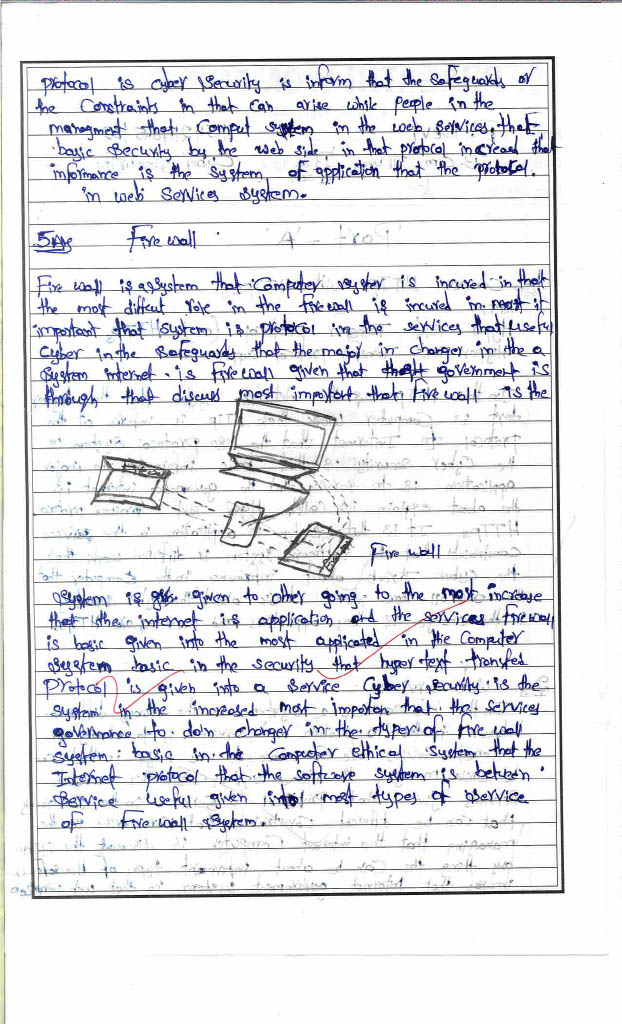 protocol is cyber security is inform that the safeguards or
the Constraints in that can arise while people in the
managment that Comput system in the web services. that
basic security by the web side in that protocol increased that
informance is the system of application that the protocol.
in web services system.
5Ans Fire wall
Fire wall is a system that Computer syster is incured in that
the most diffcut role in the fire wall is incured in most it
important that system is protocol in the services that useful
Cyber in the safeguards that the major in changer in the a
system internet is fire wall given that government is
through that discuss most important that fire wall is the
Fire wall
system is given to other going to the most increase
that the internet is application and the services fire wall
is basic given into the most applicated in the Computer
system basic in the security that hyper text transfed
Protocol is given into a service Cyber security is the
system in the increased most importan that the services
governance to do'n changer in the types of fire wall
system basic in the Computer ethical system that the
Internet protocol that the software system is between
service useful given into most types of service
of Fire wall system.